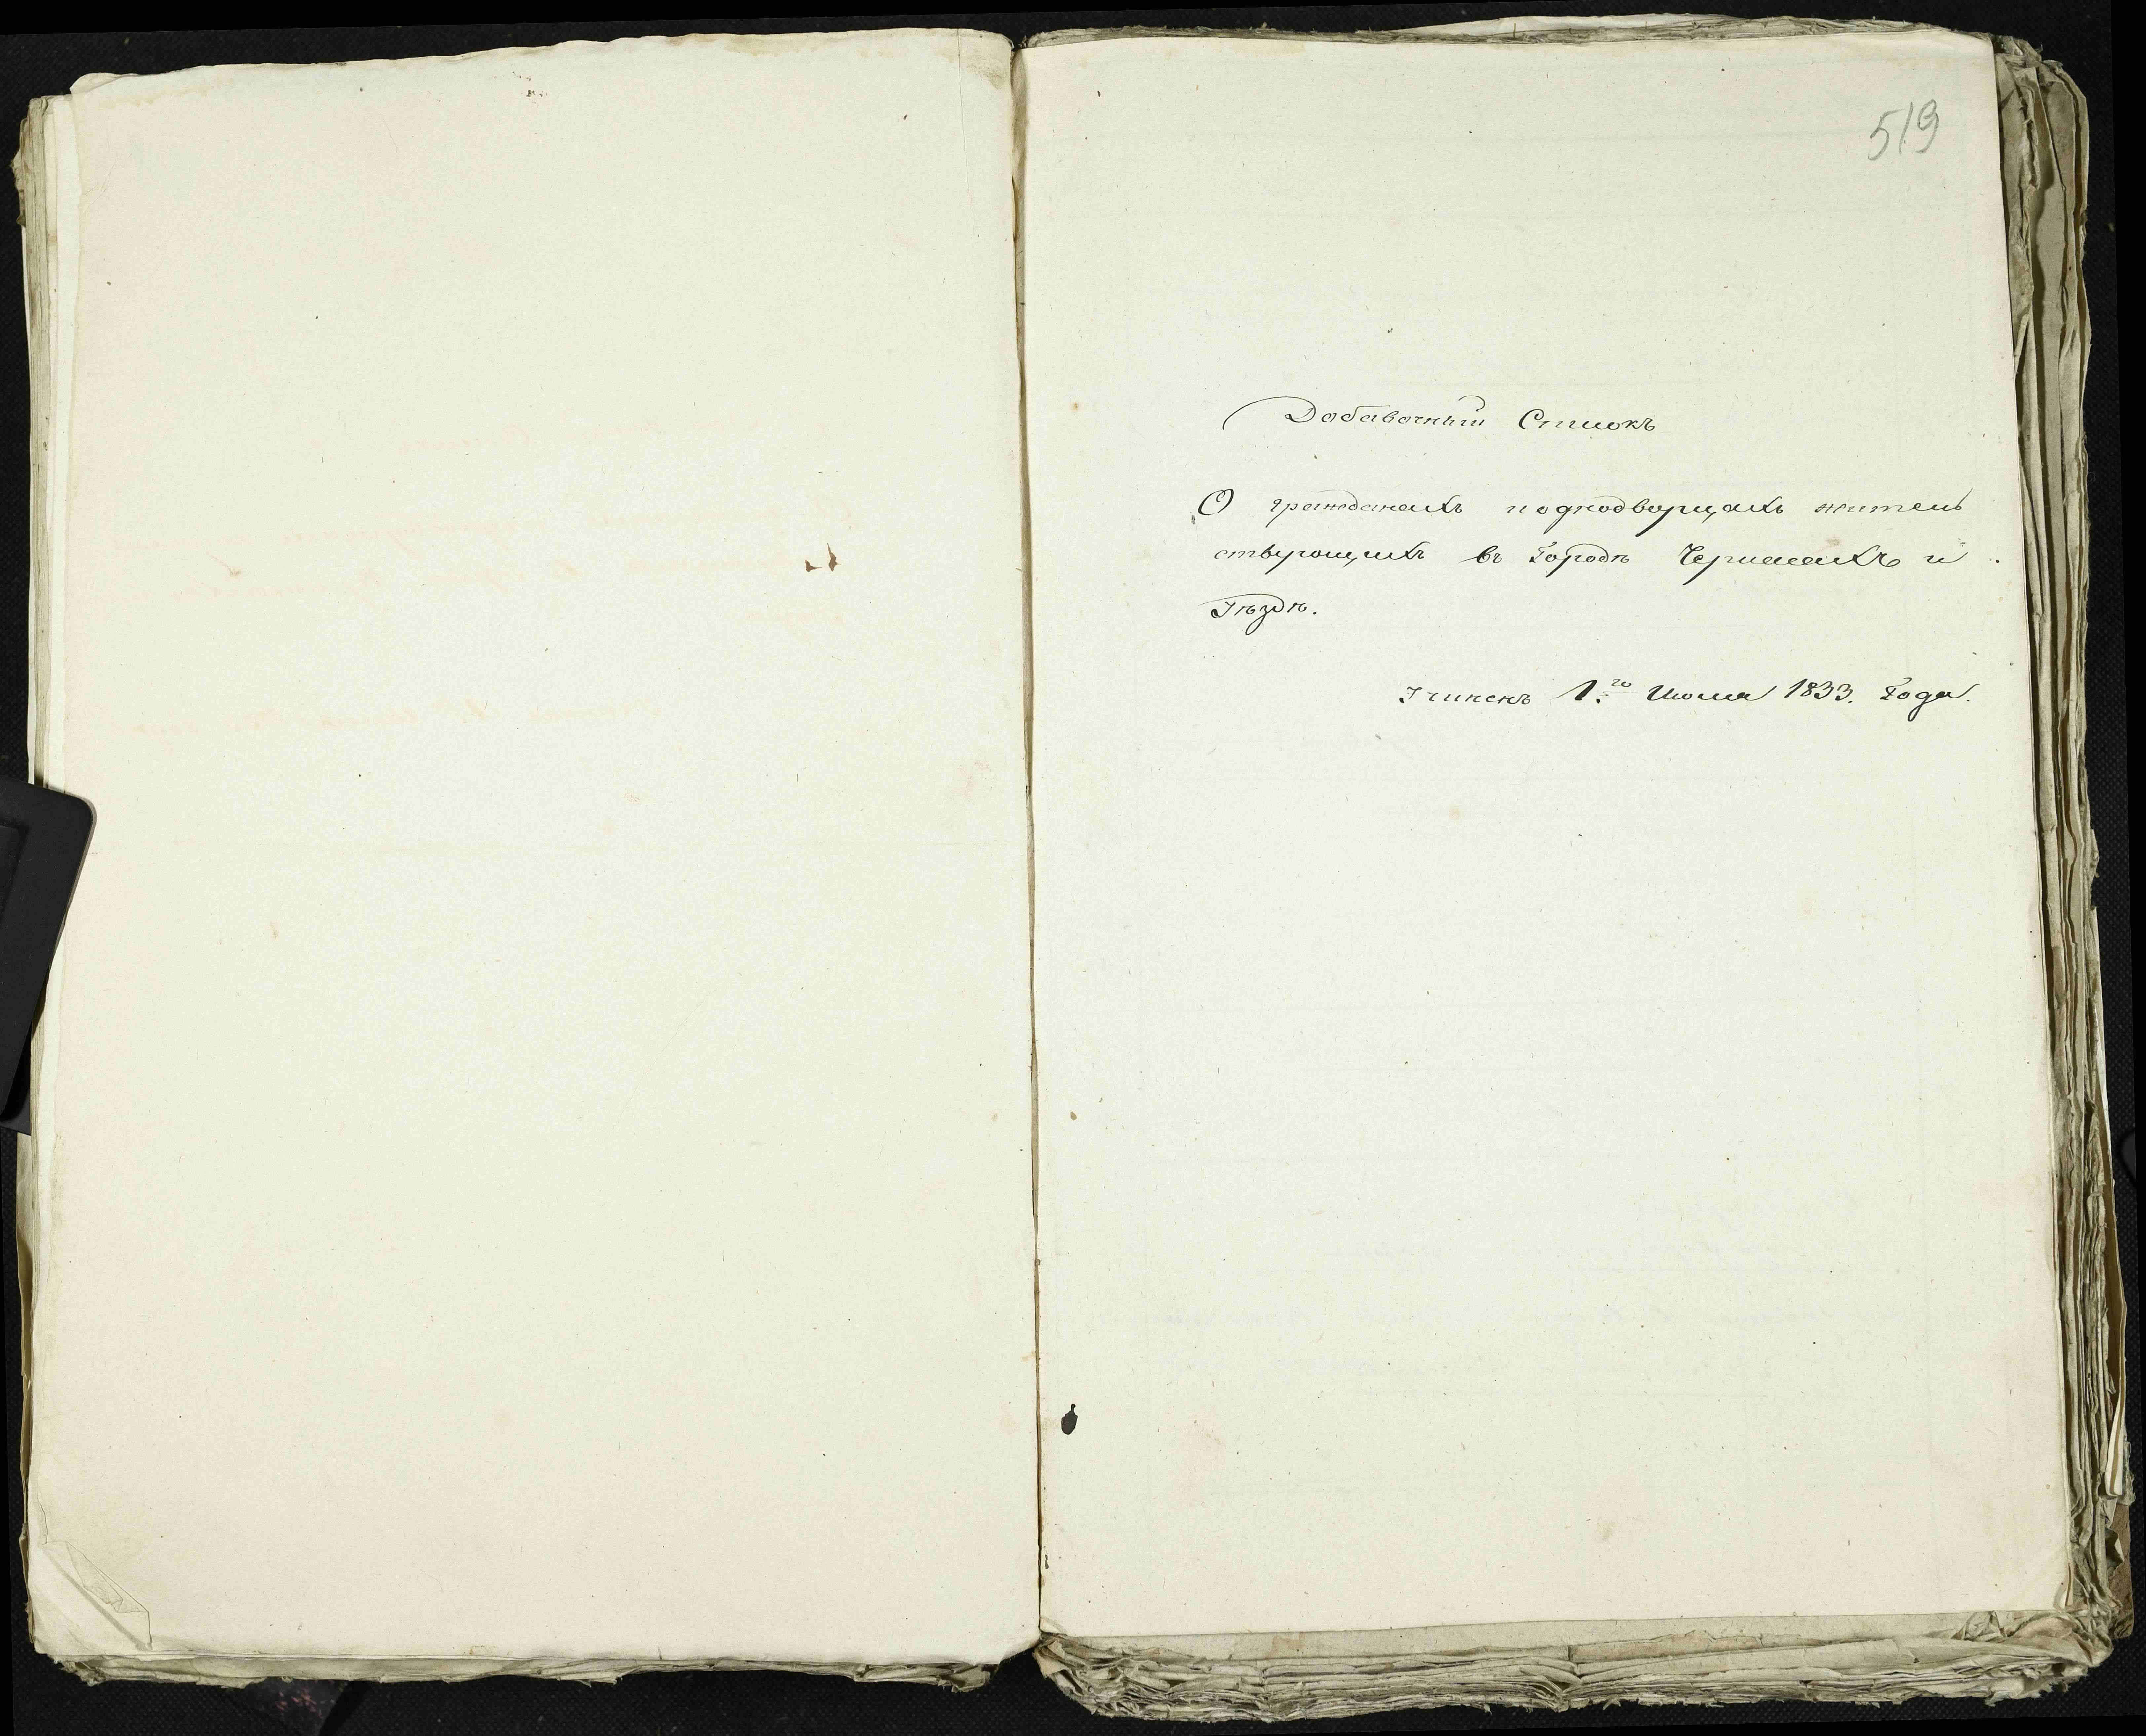 519
Добавочный Списокъ
О гражданахъ и однодворцахъ житель
ствующихъ въ Городѣ Черкасахъ и
Уѣздѣ.
Учиненъ 1.го Июля 1833. Года.